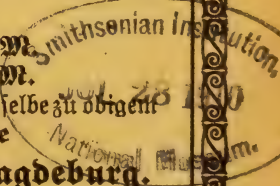 M.
Smithsonian Institution,
M.
JUL 28
selbe zu obigent
e
National Museum.
agdeburg.